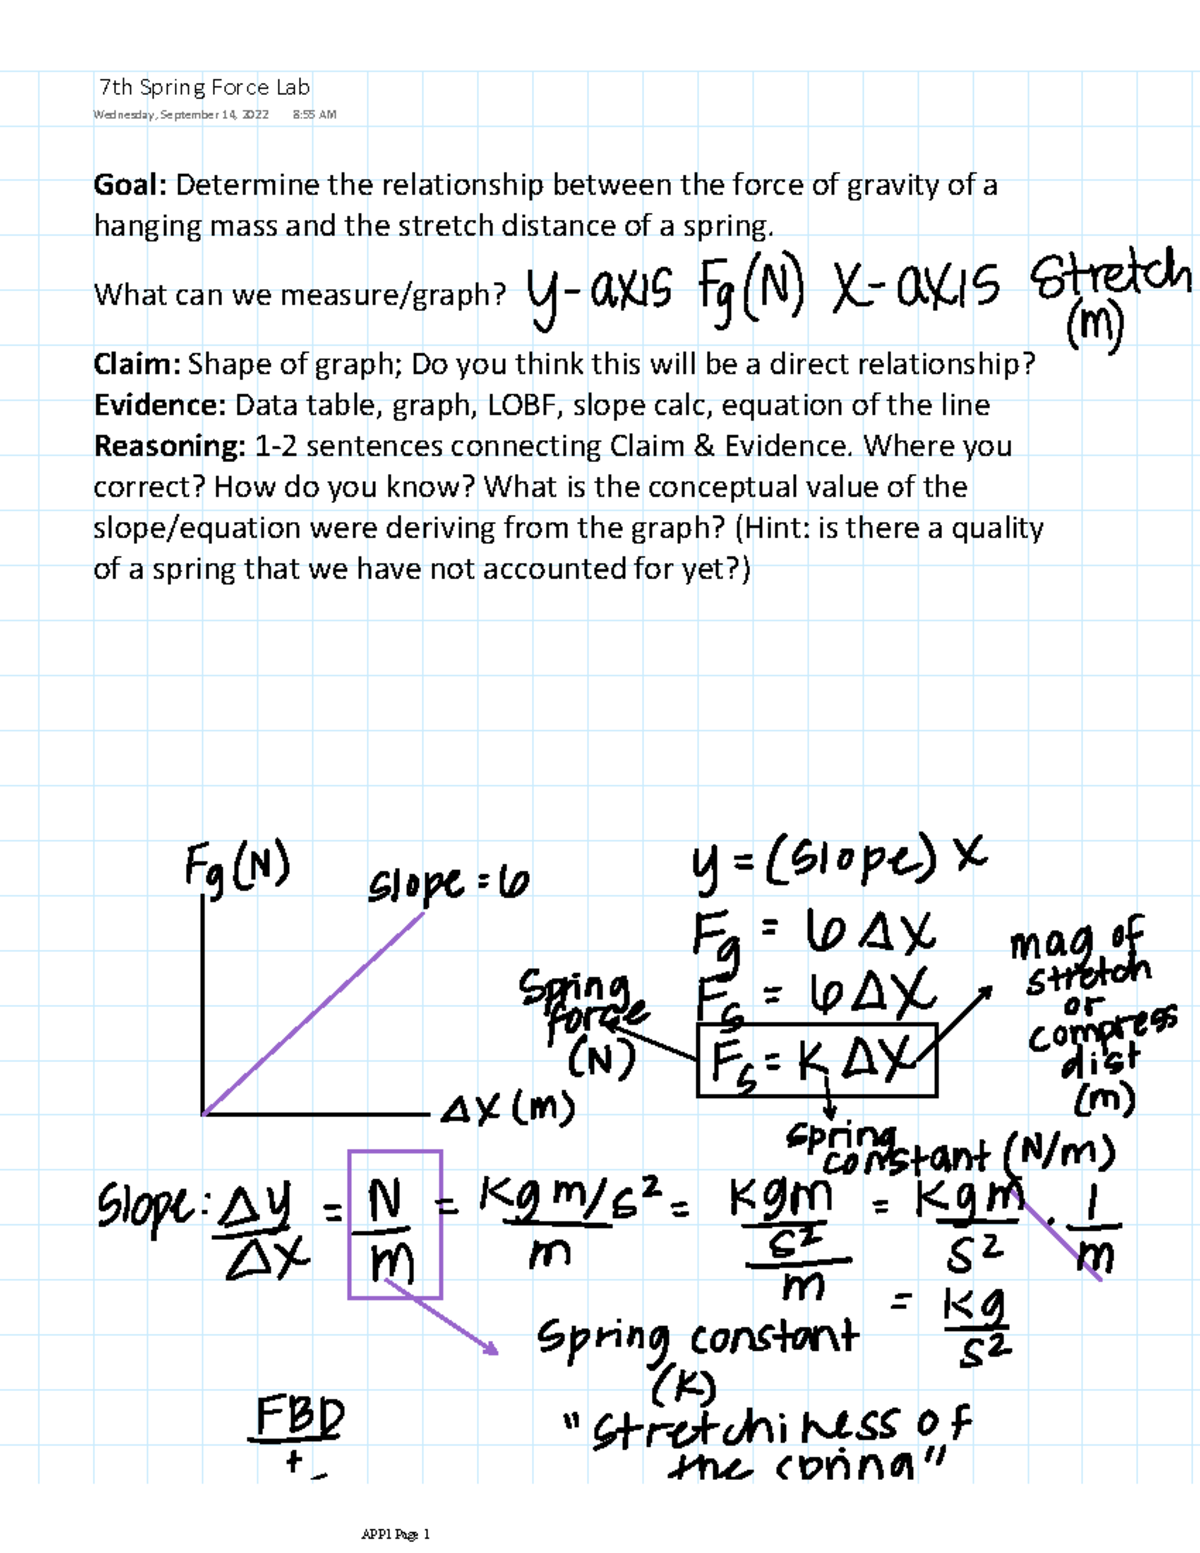 7th Spring Force Lab
Wednesday, September 14, 2022 8:55 AM
Goal: Determine the relationship between the force of gravity of a
hanging mass and the stretch distance of a spring.
What can we measure/graph? y-axis Fg(N) x-axis Stretch
(m)
Claim: Shape of graph; Do you think this will be a direct relationship?
Evidence: Data table, graph, LOBF, slope calc, equation of the line
Reasoning: 1-2 sentences connecting Claim & Evidence. Where you
correct? How do you know? What is the conceptual value of the
slope/equation were deriving from the graph? (Hint: is there a quality
of a spring that we have not accounted for yet?)
Fg(N)
slope = 6
Δx (m)
y = (slope) x
Fg = 6 Δx
Fs = 6 Δx
Fs = K Δx
Spring
force
(N)
mag of
stretch
or
compress
dist
(m)
spring
constant (N/m)
Slope: Δy/Δx = N/m = Kg m/s²/m = Kgm/s²/m = Kgm/s² · 1/m
= Kg/s²
Spring constant
(K)
"Stretchiness of
the spring"
FBD
+
APP1 Page 1